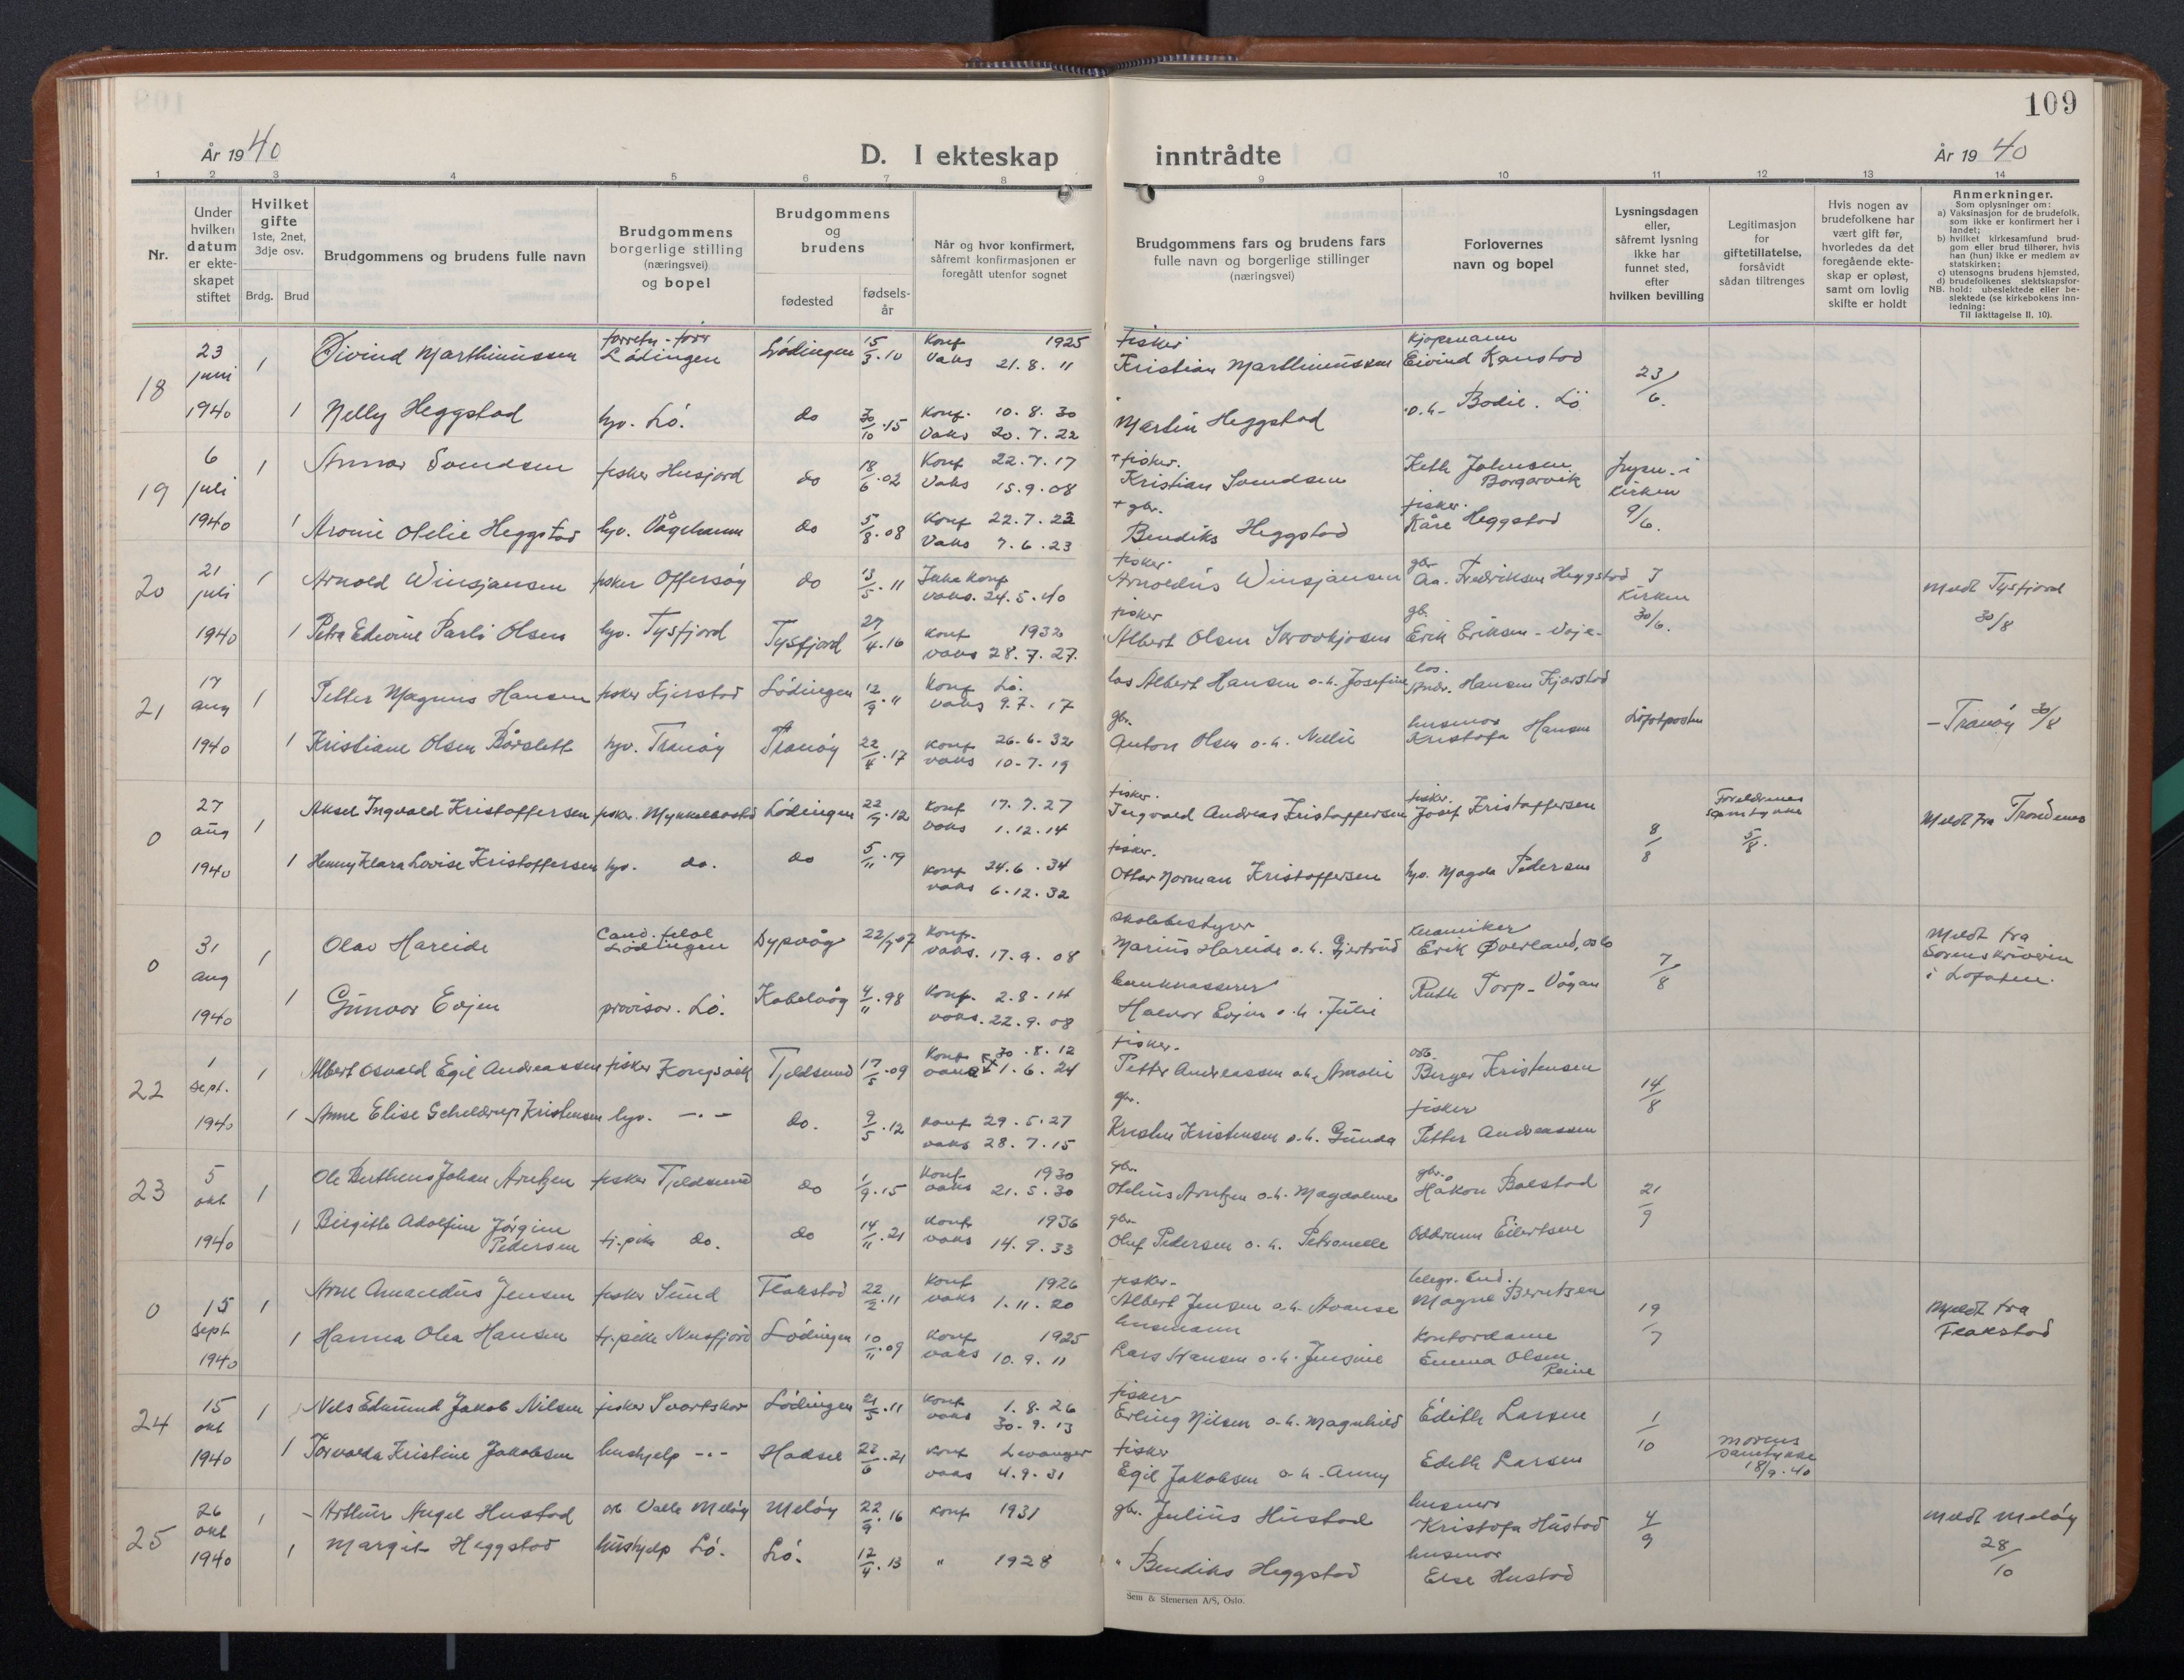 109
År 1940
D. I ekteskap inntrådte
År 1940
1 2 3 4 5 6 7 8 9 10 11 12 13 14
Nr.
Under hvilken datum er ekteskapet stiftet
Hvilket gifte
1ste, 2net, 3dje osv.
Brdg. Brud
Brudgommens og brudens fulle navn
Brudgommens borgerlige stilling (næringsvei) og bopel
Brudgommens og brudens
fødested
fødselsår
Når og hvor konfirmert, såfremt konfirmasjonen er foregått utenfor sognet
Brudgommens fars og brudens fars fulle navn og borgerlige stillinger (næringsvei)
Forlovernes navn og bopel
Lysningsdagen eller, såfremt lysning ikke har funnet sted, efter hvilken bevilling
Legitimasjon for giftetillatelse, forsåvidt sådan tiltrenges
Hvis nogen av brudefolkene har vært gift før, hvorledes da det foregående ekteskap er opløst, samt om lovlig skifte er holdt
Anmerkninger.
Som oplysninger om:
a) Vaksinasjon for de brudefolk, som ikke er konfirmert her i landet;
b) hvilket kirkesamfund brudgom eller brud tilhører, hvis han (hun) ikke er medlem av statskirken;
c) utensogns brudens hjemsted,
d) brudefolkenes slektskapsforhold: ubeslektede eller beslektede (se kirkebokens innledning:
NB.
Til iakttagelse II. 10).
18 23 juni 1940 1 Øivind Marthinussen Lødingen Lødingen 15/9.10 Konf 1925 Vaks 21.8.11 fisker Kristian Marthinussen kjøpmann Eivind Kanstad 23/6.
1 Nelly Heggstad hjv. Lö. do 30/10.15 Konf. 10.8.30 Vaks 20.7.22 Martin Heggstad o.h. Bodil. Lö
19 6 juli 1940 1 Annar Svendsen fisker Husjord do 18/6.02 Konf 22.7.17 Vaks 15.9.08 + fisker. Kristian Svendsen Keth Johnsen Borgarvik lysn. i Kirken 9/6.
1 Aronie Otelie Heggstad hjv. Vågehamn do 5/8.08 Konf 22.7.23 Vaks 7.6.23 + gbr. Bendiks Heggstad fisker. Kåre Heggstad
20 21 juli 1940 1 Arnold Winsjansen fisker Offersøy do 13/5.11 Ikke Konf vaks. 24.5.40 fisker. Arnoldus Winsjansen gbr Aa. Fredriksen Heggstad I Kirken 30/6. Meldt Tysfjord 30/8
1 Petra Edvine Parli Olsen hjv. Tysfjord Tysfjord 27/4.16 Konf 1932 vaks 28.7.27. fisker Albert Olsen gb. Erik Eriksen
21 17 aug 1940 1 Petter Magnus Hansen fisker Kjerstad Lödingen 12/9.11 Konf Lö. vaks 9.7.17 los Albert Hansen o.h. Josefine los. Andr. Hansen Kjærstad Lofotposten - Tranøy 30/8
1 Kristiane Olsen Bårslett hjv. Tranøy Tranøy 22/4.17 Konf 26.6.32 vaks 10.7.19 gbr. Anton Olsen o.h. Nellie husmor Kristofa Hansen
0 27 aug 1940 1 Aksel Ingvald Kristoffersen fisker. Mykkelbostd Lödingen 22/9.12 Konf 17.7.27 vaks 1.12.14 fisker. Ingvald Andreas Kristoffersen fisker. Josef Kristoffersen 8/8 Foreldrenes samtykke 5/8. Meldt fra Trondenes
1 Henny Klara Lovise Kristoffersen hjv. do. do 5/11.19 Konf 24.6.34 vaks 6.12.32 fisker. Ottar Norman Kristoffersen hjv. Magda Pedersen
0 31 aug 1940 1 Olav Hareide Cand. teol Lödingen Dypvåg 22/7 07 Konf. vaks. 17.9.08 skolebestyrer Marius Hareide o.h. Gjertrud keramiker Erik Øverland, Oslo 7/8 Meldt fra Sorenskriveren i Lofoten.
1 Gunvor Evjen provisor. Lö. Kabelvåg 4/11.98 Konf. 2.8.14 vaks. 22.9.08 bankkasserer Halvor Evjen o.h. Julie Ruth Torp - Vågan
22 1 sept. 1940 1 Albert Osvald Egil Andreassen fisker Kongsvik Tjeldsund 17/5.09 Konf 30.8.12 vaks 1.6.24 fisker. Petter Andreassen o.h. Amalie Birger Kristensen 14/8
1 Anne Elise Scheldrup Kristensen hjv. -"- do. 9/5.12 Konf 29.5.27 vaks 28.7.15 gbr. Kristen Kristensen o.h. Gunda fisker Petter Andreassen
23 5 okt 1940 1 Ole Berthens Johan Arntzen fisker Tjeldsund do 1/9.15 Konf 1930 vaks 21.5.30 gbr. Otelius Arntzen o.h. Magdalene gbr. Håkon Balstad 21/9
1 Birgitte Adolfine Jörgine Pedersen tj.pike do. do 14/11.21 Konf 1936 vaks 14.9.33 gbr Oluf Pedersen o.h. Petranelle Oddrunn Eilertsen
0 15 sept 1940 1 Arne Amandus Jensen fisker Sund Flakstad 22/2.11 Konf 1926 vaks 1.11.20 fisker. Albert Jensen o.h. Avanse Magne Berntzen 19/7 Meldt fra Flakstad
1 Hanna Olea Hansen tj.pike Nusfjord Lödingen 10/11.09 Konf 1925 vaks 10.9.11 husmann Lars Hansen o.h. Jensine Kontordame Emma Olsen Reine
24 15 okt 1940 1 Nils Edmund Jakob Nilsen fisker Svartskar Lödingen 21/5.11 Konf 1.8.26 vaks 30.9.13 fisker Erling Nilsen o.h. Magnhild Edith Larsen 1/10
1 Torvalda Kristine Jakobsen hushjelp -"- Hadsel 23/6.21 Konf Levanger vaks 4.9.31 fisker Egil Jakobsen o.h. Anny Edith Larsen morens samtykke 18/9.40
25 26 okt 1940 1 Arthur Angel Hustad arb Valle Meløy Meløy 22/9.16 Konf 1931 gbr. Julius Hustad husmor Kristofa Hustad 4/9 Meldt Meløy 28/10
1 Margit Heggstad hushjelp Lö. Lö. 12/4.13 " 1928 " Bendiks Heggstad husmor Else Hustad
Sem & Stenersen A/S, Oslo.